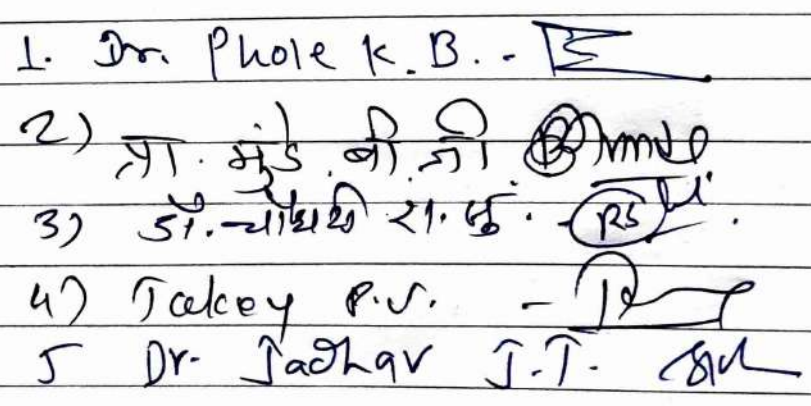 1. Dr. Phole K. B. -
2) प्रा. मुंडे बी जी
3) डॉ. चौधरी रा. कुं. -
4) Takey P.V. -
5 Dr. Jadhav J.T.